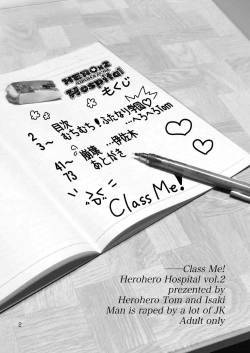 HERO×2
Hospital
もくじ
2 目次
3〜 むちむち!ふたなり学園♡
…へろへろTom
41〜 の崩壊 …伊佐木
73 あとがき
Class Me!
——Class Me!
Herohero Hospital vol.2
prezented by
Herohero Tom and Isaki
Man is raped by a lot of JK
Adult only
2